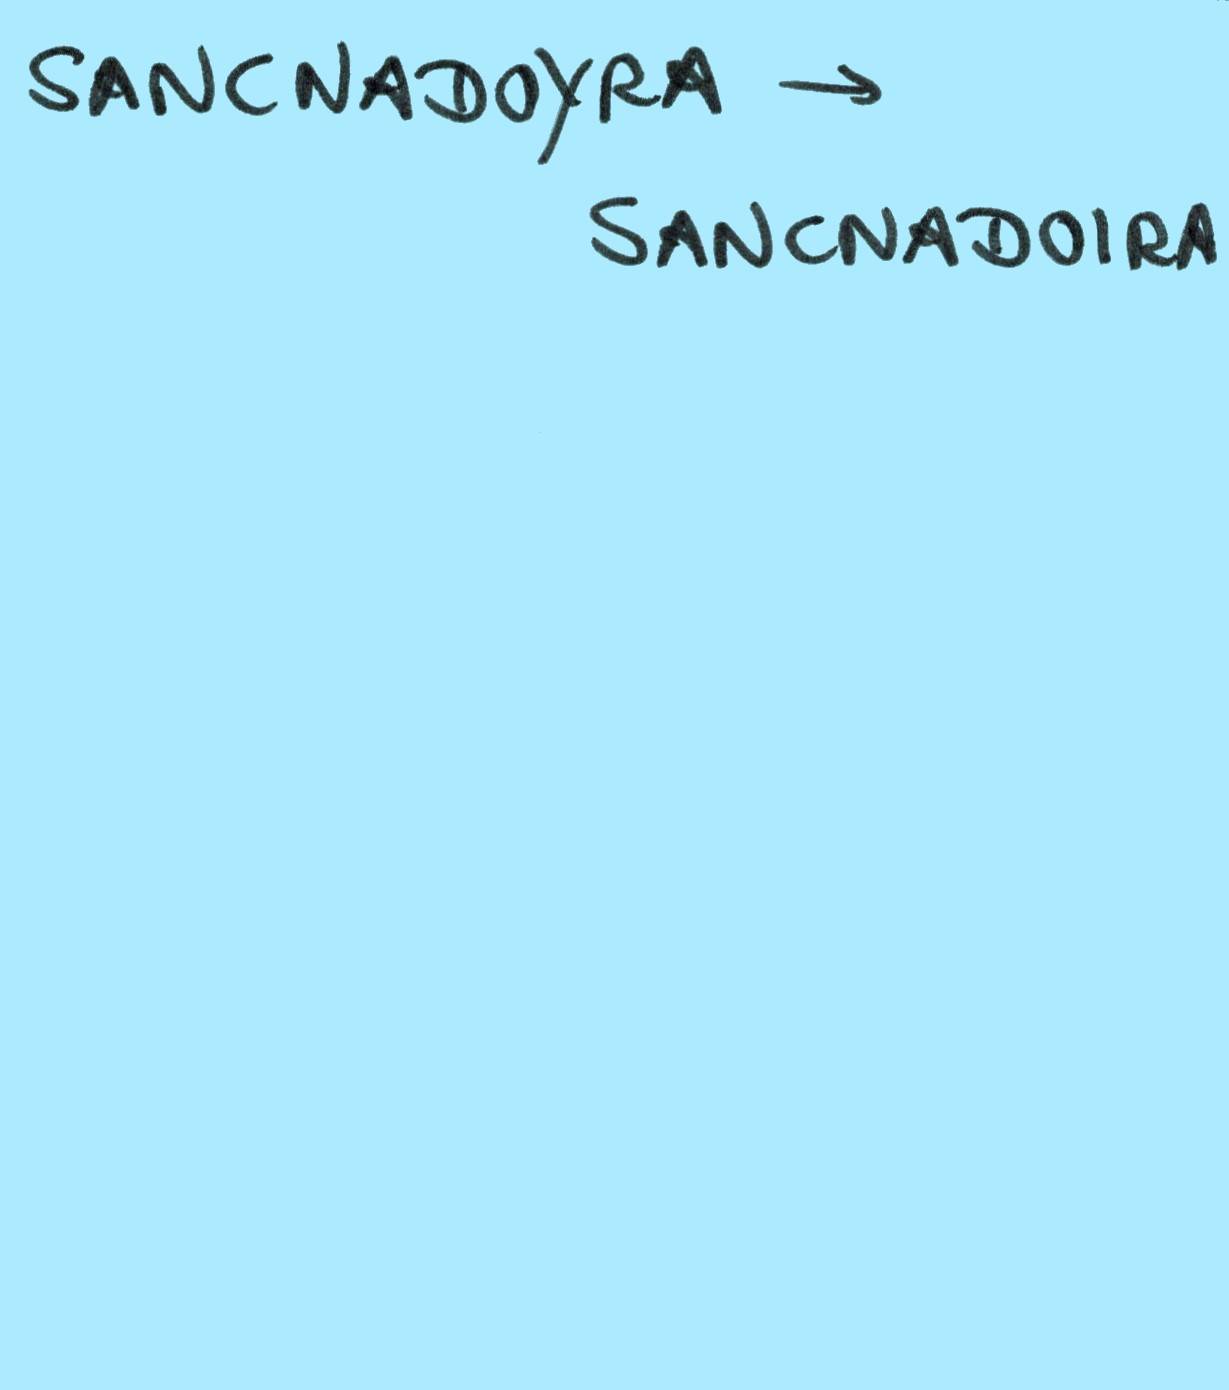 SANCNADOYRA →
SANCNADOIRA